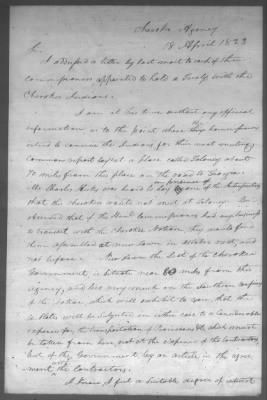 Cherokee Agency
18 April 1823
Sir,
I addressed a letter by last mail to each of the
commissioners appointed to hold a Treaty with the
Cherokee Indians.
I am at his time without any official
information as to the point where the commissioners
intend to convene the Indians for their next meeting;
Common report says at a place called Taloney about
70 miles from this place on the road to Georgia.
Mr Charles Hicks was heard to say in presence of one of the Interpreters
that the cherokees would not meet at Taloney. He
observed that if the said commissioners had any business
to transact with the Cherokee Nation, they would find
them assembled at new town in October next, and
not before. New town the Seat of the Cherokee
Government is situate near 60 miles from this
agency, and lies very much on the Southern
of the Nation, which will exhibit to you, that the
U States will be subjected in either case to a considerable
expense for the transportation of Provisions &c which must
be taken from here, not at the expense of the contractors
but of the Government by an article in the agree
ment with the Contractors.
I know, I feel a suitable degree of interest